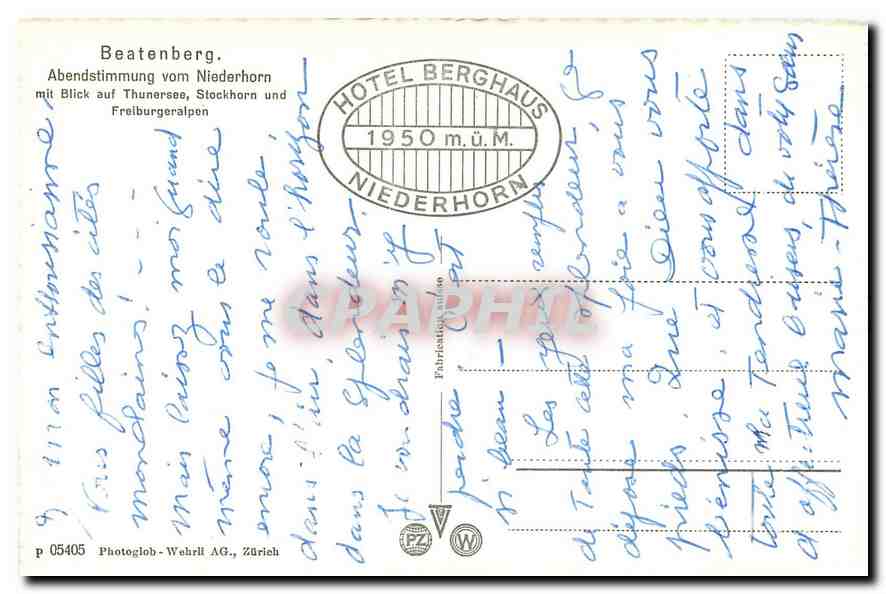 Beatenberg.
Abendstimmung vom Niederhorn
mit Blick auf Thunersee, Stockhorn und
Freiburgeralpen
HOTEL BERGHAUS
1950 m.ü.M.
NIEDERHORN
mon enthousiasme,
filles des cités
mondaines! - - -
Mais laissez moi quand
même vous le dire
encore, je me roule,
dans dans l'horizon
dans la splendeur.
Je voudrais m'y
perdre. C'est
si beau -
Les yeux remplis
de toute cette splendeur, je
dépose ma joie à vos
pieds. Que Dieu vous
bénisse, et vous apporte
toute ma Tendresse dans
Marie-Thérèse.
Fabrication suisse
CPAPHIL
PZ
W
p 05405 Photoglob-Wehrli AG., Zürich